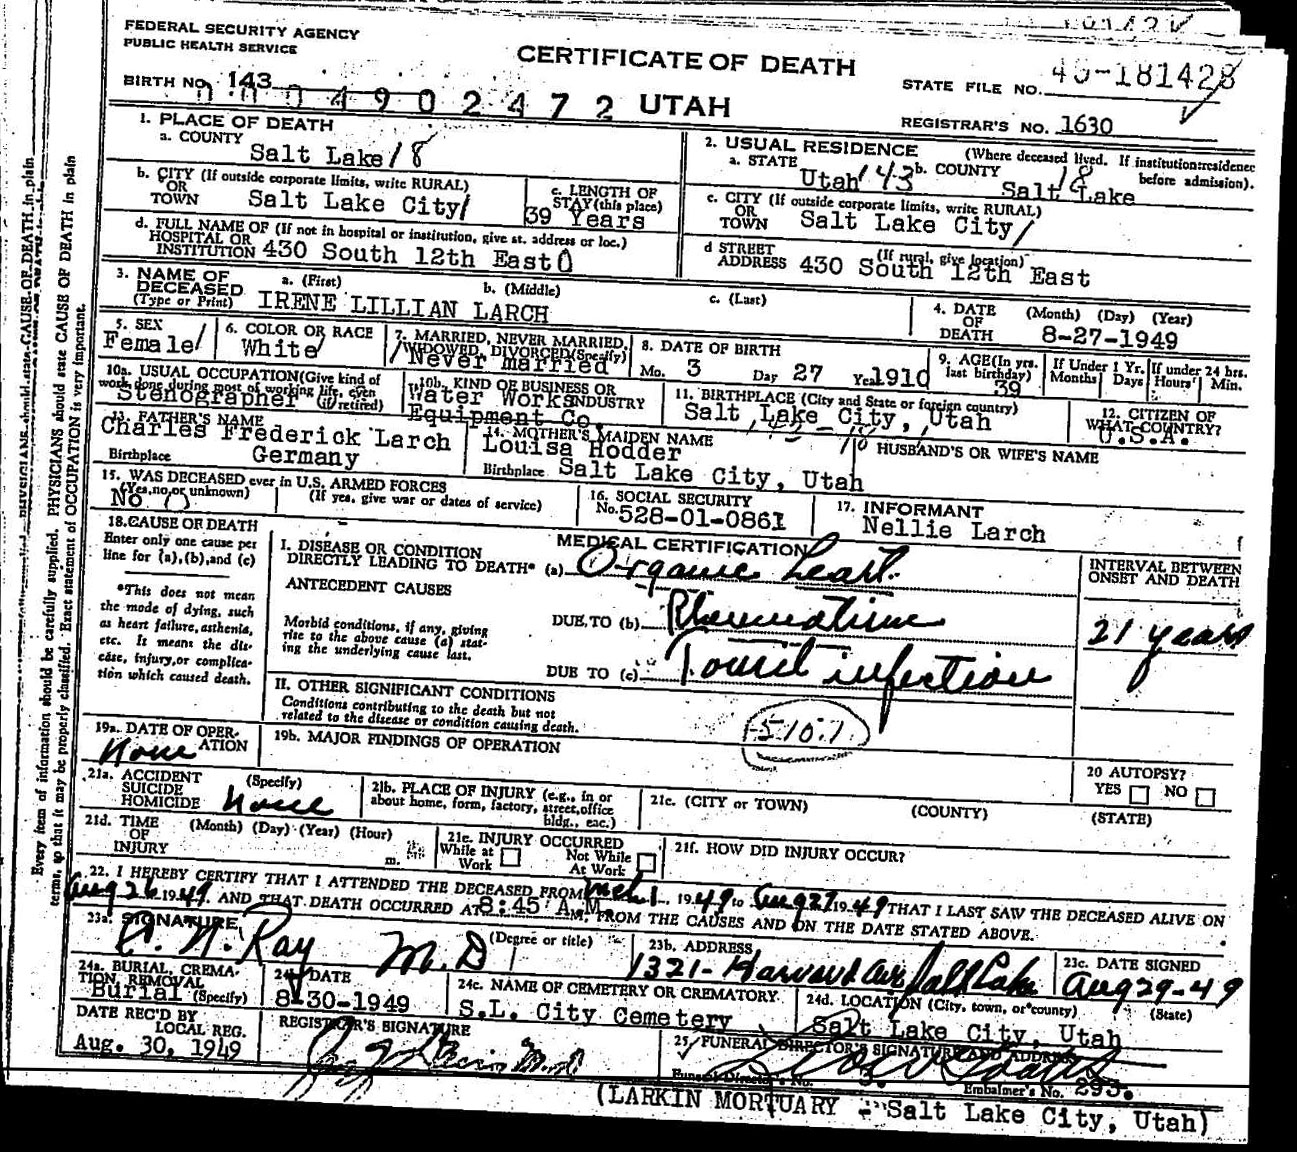 FEDERAL SECURITY AGENCY
PUBLIC HEALTH SERVICE
CERTIFICATE OF DEATH
STATE FILE NO. 49-181428
BIRTH NO. 143
0004902472 UTAH
REGISTRAR'S NO. 1630
1. PLACE OF DEATH
a. COUNTY
Salt Lake 18
2. USUAL RESIDENCE (Where deceased lived. If institution:residence before admission).
a. STATE Utah 143 b. COUNTY Salt Lake 18
b. CITY (If outside corporate limits, write RURAL)
OR
TOWN Salt Lake City
c. LENGTH OF STAY (this place)
39 Years
c. CITY (If outside corporate limits, write RURAL)
OR
TOWN Salt Lake City
d. FULL NAME OF (If not in hospital or institution, give st. address or loc.)
HOSPITAL OR
INSTITUTION 430 South 12th East 0
d STREET (If rural, give location)
ADDRESS 430 South 12th East
3. NAME OF DECEASED (Type or Print)
a. (First) b. (Middle) c. (Last)
IRENE LILLIAN LARCH
4. DATE OF DEATH (Month) (Day) (Year)
8-27-1949
5. SEX
Female
6. COLOR OR RACE
White
7. MARRIED, NEVER MARRIED, WIDOWED, DIVORCED (Specify)
Never married
8. DATE OF BIRTH
Mo. 3 Day 27 Year 1910
9. AGE (In yrs. last birthday)
39
If Under 1 Yr. Months Days
If under 24 hrs. Hours Min.
10a. USUAL OCCUPATION (Give kind of work done during most of working life, even if retired)
Stenographer
10b. KIND OF BUSINESS OR INDUSTRY
Water Works Equipment Co.
11. BIRTHPLACE (City and State or foreign country)
Salt Lake City, Utah
12. CITIZEN OF WHAT COUNTRY?
U.S.A.
13. FATHER'S NAME
Charles Frederick Larch
Birthplace Germany
14. MOTHER'S MAIDEN NAME
Louisa Hodder
Birthplace Salt Lake City, Utah
HUSBAND'S OR WIFE'S NAME
15. WAS DECEASED ever in U.S. ARMED FORCES
(Yes, no or unknown) (If yes, give war or dates of service)
No 0
16. SOCIAL SECURITY
No. 528-01-0861
17. INFORMANT
Nellie Larch
18. CAUSE OF DEATH
Enter only one cause per line for (a), (b), and (c)
*This does not mean the mode of dying, such as heart failure, asthenia, etc. It means the disease, injury, or complication which caused death.
MEDICAL CERTIFICATION
I. DISEASE OR CONDITION
DIRECTLY LEADING TO DEATH* (a) Organic Heart
INTERVAL BETWEEN ONSET AND DEATH
ANTECEDENT CAUSES
Morbid conditions, if any, giving rise to the above cause (a) stating the underlying cause last.
DUE TO (b) Rheumatism
21 years
DUE TO (c) Tonsil infection
II. OTHER SIGNIFICANT CONDITIONS
Conditions contributing to the death but not
related to the disease or condition causing death.
510.1
19a. DATE OF OPERATION
None
19b. MAJOR FINDINGS OF OPERATION
20 AUTOPSY?
YES NO
21a. ACCIDENT SUICIDE HOMICIDE (Specify)
None
21b. PLACE OF INJURY (e.g., in or about home, form, factory, street, office bldg., eac.)
21c. (CITY or TOWN) (COUNTY) (STATE)
21d. TIME OF INJURY (Month) (Day) (Year) (Hour) m.
21e. INJURY OCCURRED
While at Work Not While At Work
21f. HOW DID INJURY OCCUR?
22. I HEREBY CERTIFY THAT I ATTENDED THE DECEASED FROM Mch 1, 1949 to Aug 27, 1949 THAT I LAST SAW THE DECEASED ALIVE ON
Aug 26 1949 AND THAT DEATH OCCURRED AT 8:45 A.M. FROM THE CAUSES AND ON THE DATE STATED ABOVE.
23a. SIGNATURE (Degree or title)
Ray M.D
23b. ADDRESS
1321-Harvard Ave Salt Lake
23c. DATE SIGNED
Aug 29-49
24a. BURIAL, CREMATION, REMOVAL (Specify)
Burial
24b DATE
8-30-1949
24c. NAME OF CEMETERY OR CREMATORY
S.L. City Cemetery
24d. LOCATION (City, town, or county) (State)
Salt Lake City, Utah
DATE REC'D BY LOCAL REG.
Aug. 30, 1949
REGISTRAR'S SIGNATURE
25 FUNERAL DIRECTOR'S SIGNATURE AND ADDRESS
Funeral Director's No. Embalmer's No. 293.
(LARKIN MORTUARY - Salt Lake City, Utah)
Every item of information should be carefully supplied. PHYSICIANS should state CAUSE OF DEATH in plain
terms, so that it may be properly classified. Exact statement of OCCUPATION is very important.